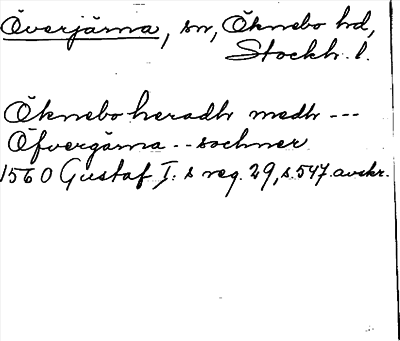 Överjärna, sn, Öknebo hd,
Stockh. l.
Öknebo heradh medh ---
Öfvergärna -- sochner
1560 Gustaf I:s reg. 29, s. 547. avskr.